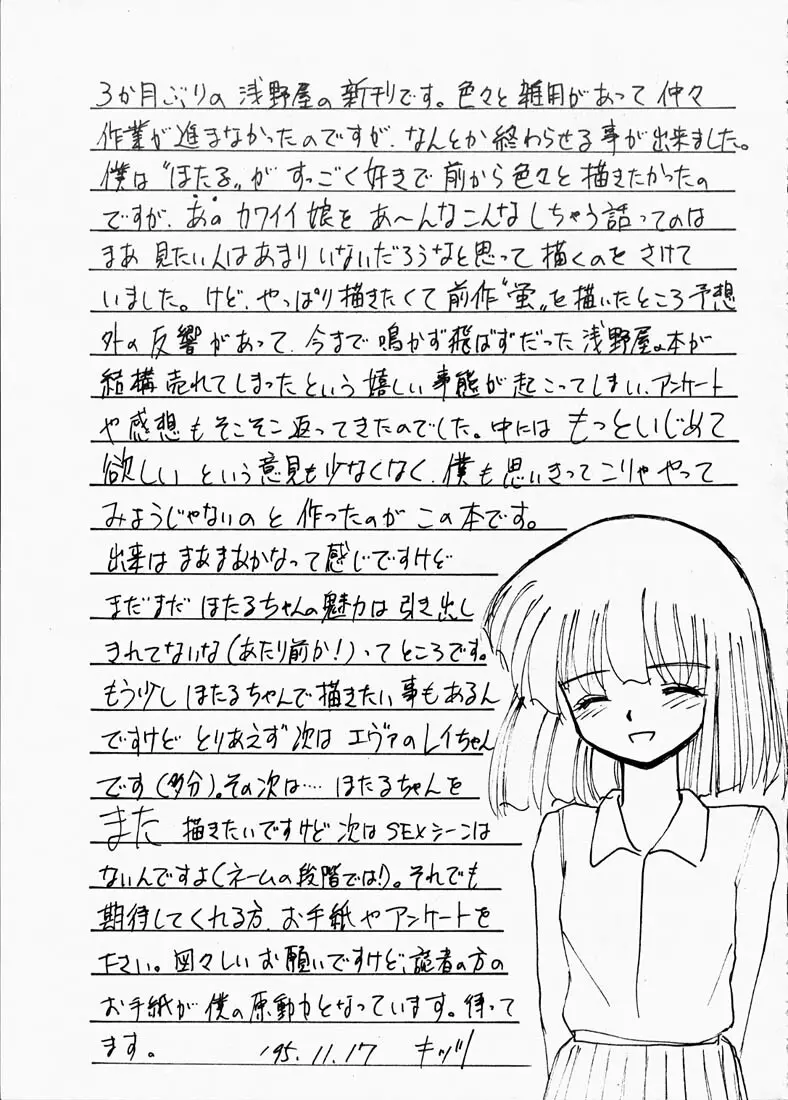 3か月ぶりの 浅野屋の新刊です。色々と雑用があって仲々
作業が進まなかったのですが、なんとか終わらせる事が出来ました。
僕は“ほたる”が すっごく好きで 前から色々と描きたかったの
ですが、あの カワイイ娘を あ〜んなこんなしちゃう話ってのは
まあ 見たい人はあまりいないだろうなと思って描くのをさけて
いました。けど、やっぱり描きたくて前作“蛍”を描いたところ予想
外の反響があって、今まで鳴かず飛ばずだった浅野屋の本が
結構売れてしまったという嬉しい事態が起こってしまい、アンケート
や感想もそこそこ返ってきたのでした。中には もっといじめて
欲しい という意見も少なくなく、僕も思いきってこりゃやって
みようじゃないのと作ったのが この本です。
出来は まあまあかなって感じですけど
まだまだ ほたるちゃんの魅力は引き出し
きれてないな(あたり前か!)ってところです。
もう少しほたるちゃんで描きたい事もあるん
ですけど とりあえず次は エヴァのレイちゃん
です(多分)。その次は… ほたるちゃんを
また 描きたいですけど次はSEXシーンは
ないんですよ(ネームの段階では!)。それでも
期待してくれる方、お手紙やアンケートを
ださい。図々しいお願いですけど、読者の方の
お手紙が僕の原動力となっています。待って
ます。 '95.11.17 キッツ